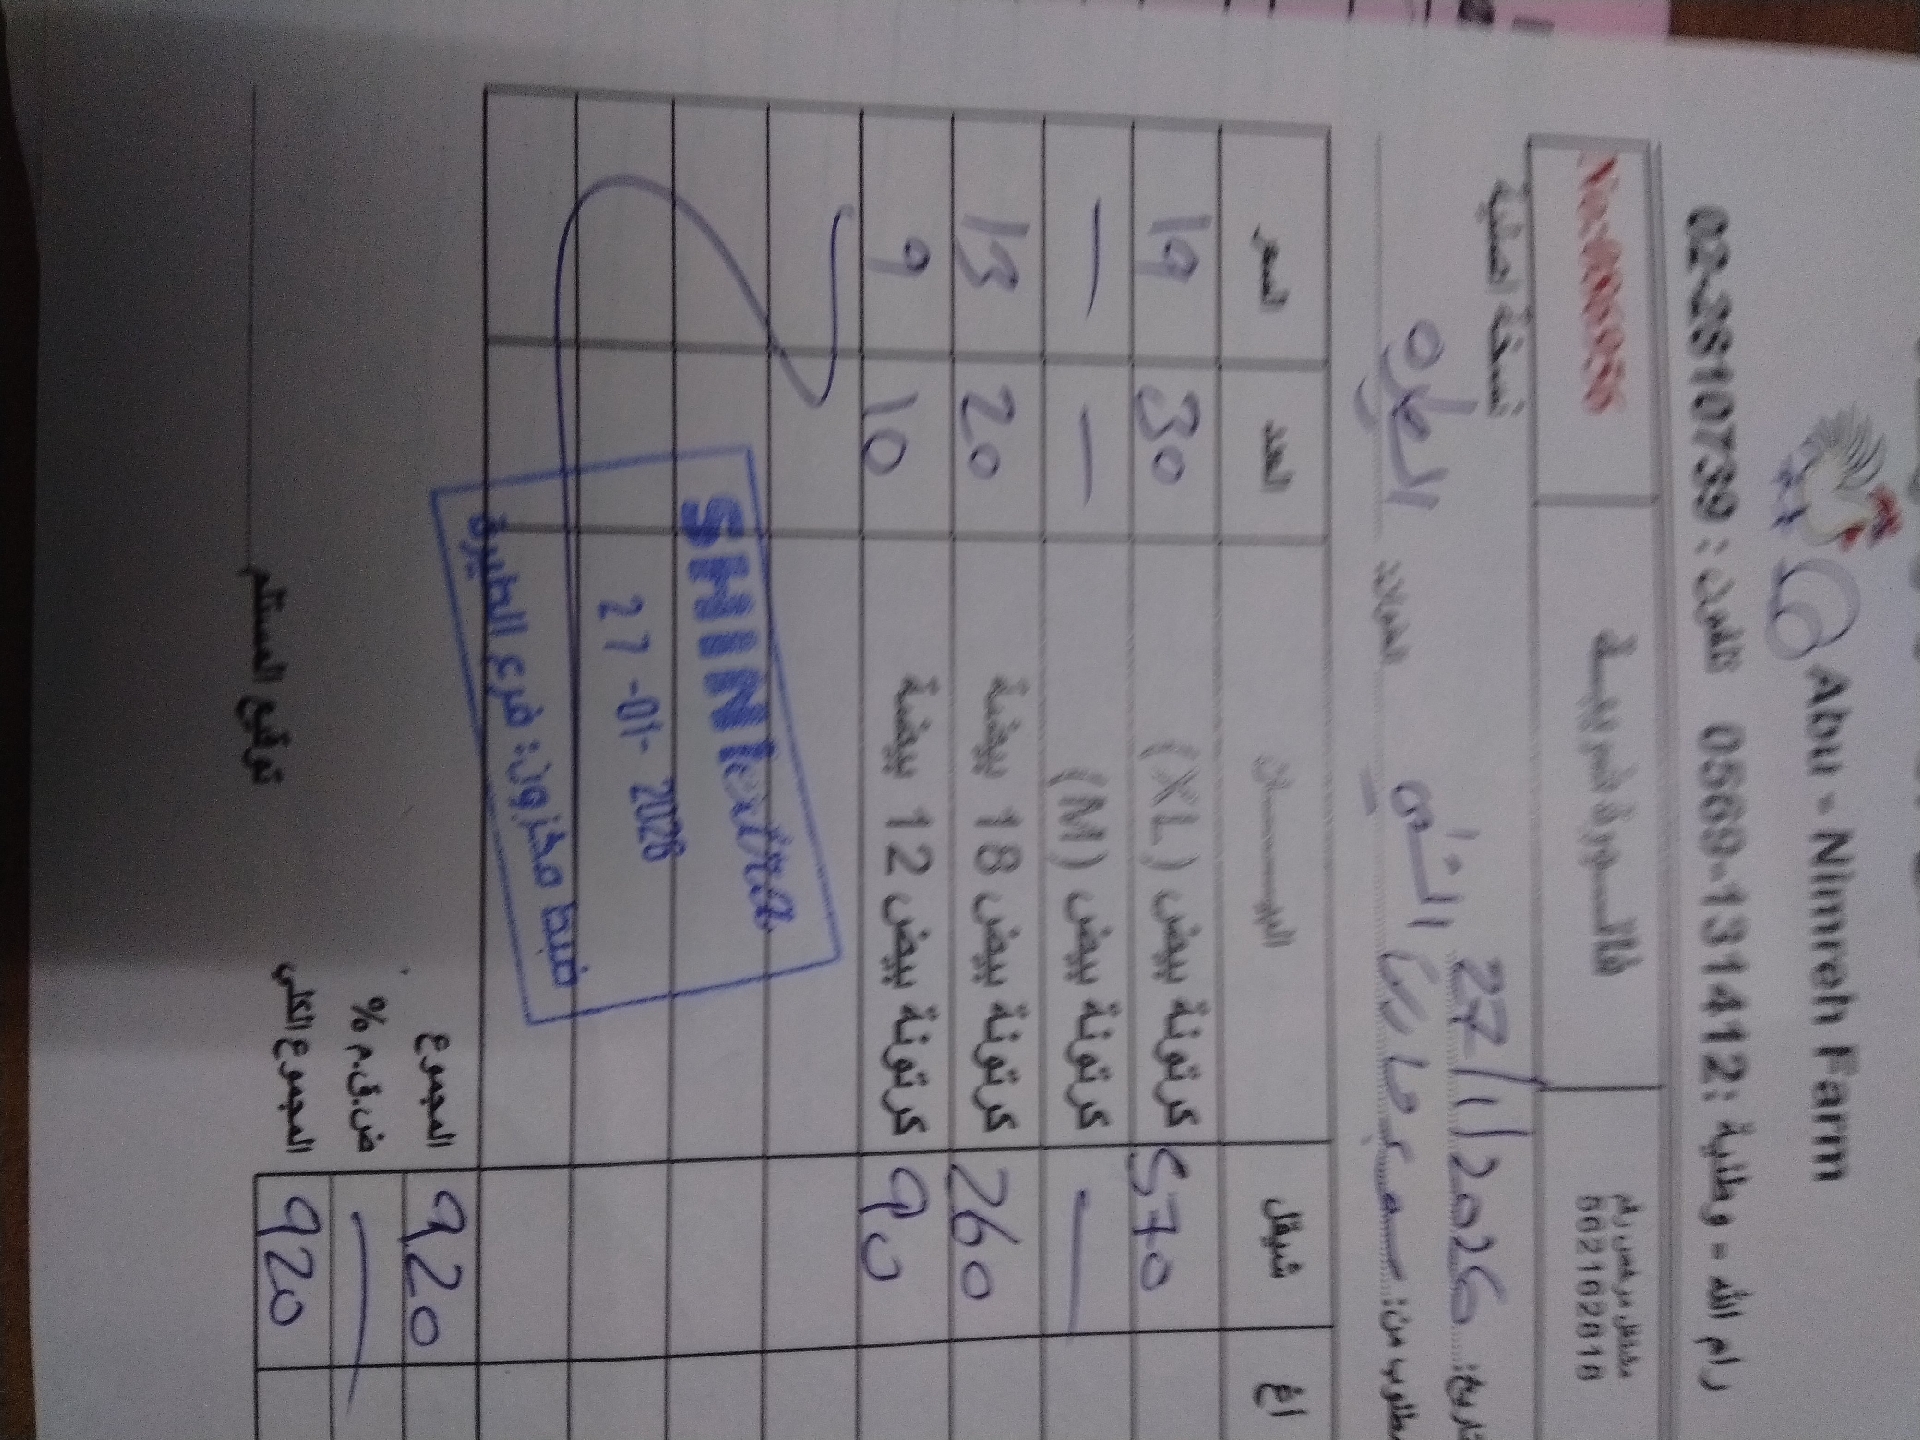 Abu - Nimreh Farm
رام الله - وطنية : 0569-131412 تلفون : 02-2810739
مشتغل مرخص رقم
فاتورة ضريبية
نسخة أصلية
27/1/2026
مطلوب من: العنوان الطيرة
اغ شيقل البيان العدد السعر
كرتونة بيض (XL) 570 30 19
كرتونة بيض (M) — — —
كرتونة بيض 18 بيضة 260 20 13
كرتونة بيض 12 بيضة 90 10 9
SHINI extra
27-01-2026
ضبط مخزون: فرع الطيرة
المجموع 920
ض.ق.م % —
المجموع الكلي 920
توقيع المستلم